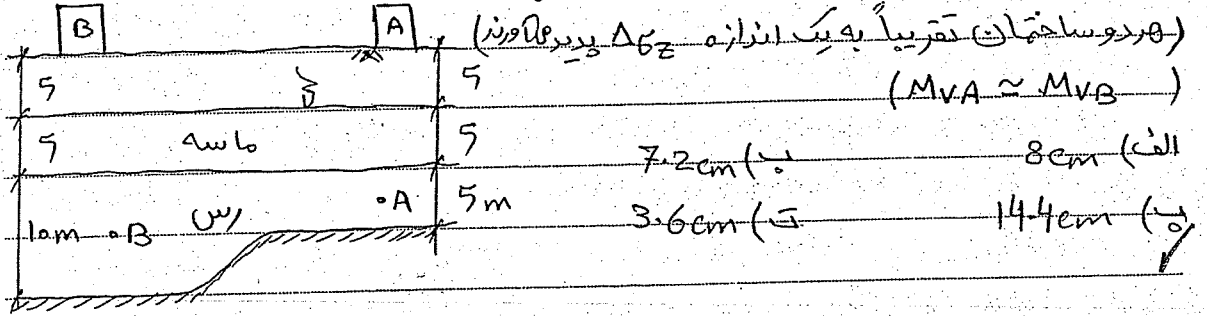 B A (هر دو ساختمان تقریباً به یک اندازه Δσz پدید می‌آورند)
5 5 (MVA ≃ MVB)
5 ماسه 5 الف) 8cm ب) 7.2cm
10m •B رس •A 5m پ) 14.4cm ت) 3.6cm